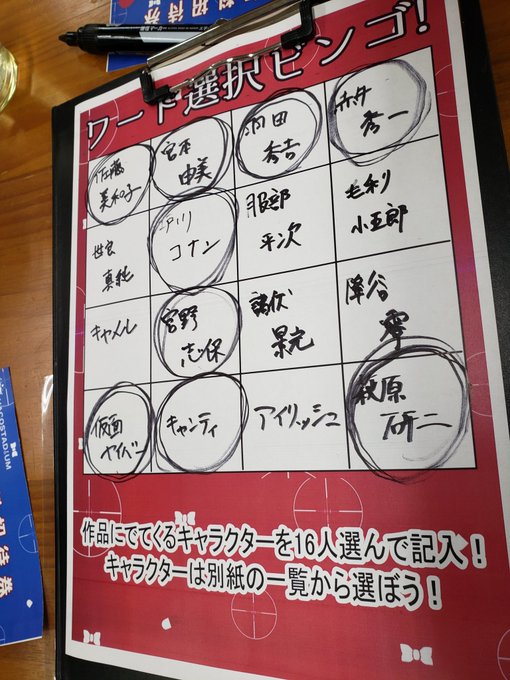 ワード選択ビンゴ!
佐藤
美和子
宮本
由美
羽田
秀吉
赤井
秀一
世良
真純
江戸川
コナン
服部
平次
毛利
小五郎
キャメル
宮野
志保
諸伏
景光
降谷
零
仮面
ヤイバー
キャンティ
アイリッシュ
萩原
研二
作品にでてくるキャラクターを16人選んで記入!
キャラクターは別紙の一覧から選ぼう!
招待券